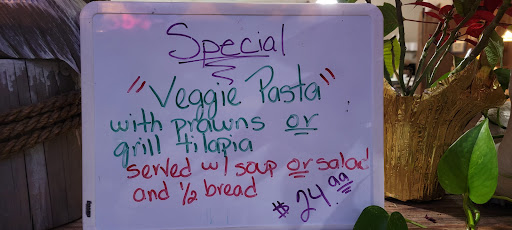 Special
"Veggie Pasta"
with prawns or
grill tilapia
served w/ soup or salad
and 1/2 bread
$24.99